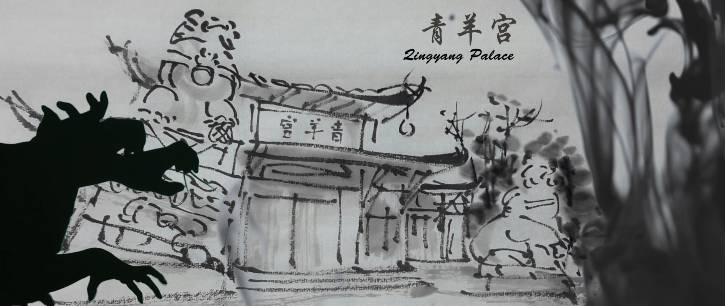 青羊宫
Qingyang Palace
宫羊青